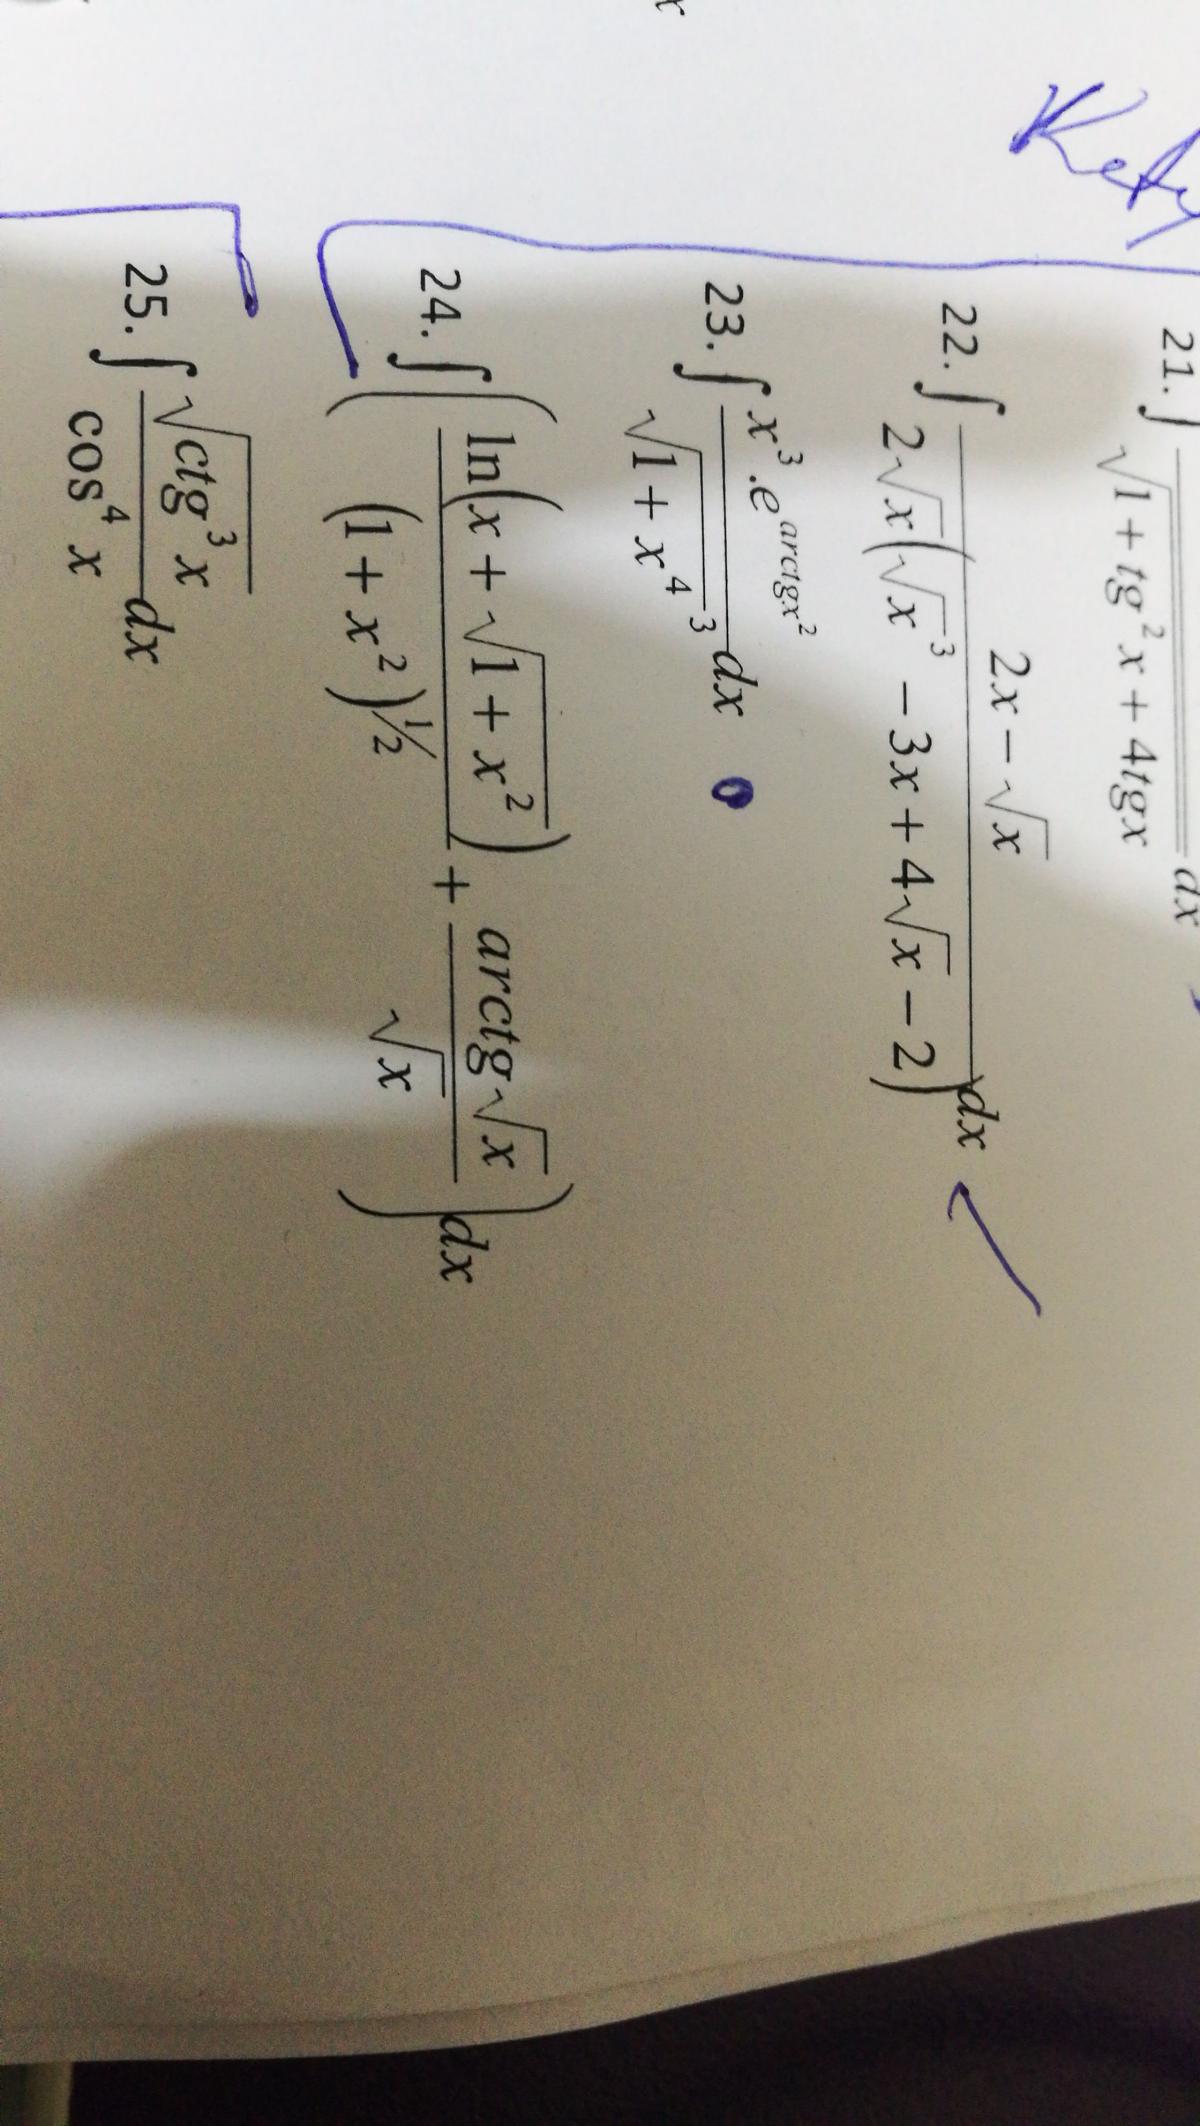 Kety
21. ∫ / √(1 + tg² x + 4tgx) dx
22. ∫ (2x − √x) / (2√x(√x³ − 3x + 4√x − 2)) dx
23. ∫ (x³ . e^(arctgx²)) / √(1 + x⁴)³ dx
24. ∫ ( ln(x + √(1 + x²)) / (1 + x²)^½ + arctg√x / √x ) dx
25. ∫ √(ctg³ x) / cos⁴ x dx